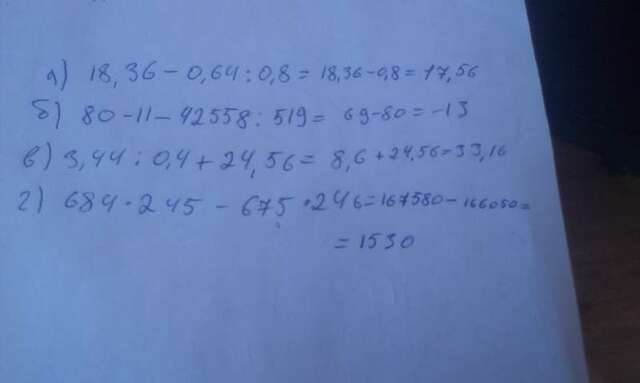 а) 18,36 - 0,64 : 0,8 = 18,36 - 0,8 = 17,56
б) 80 - 11 - 42558 : 519 = 69 - 80 = -13
в) 3,44 : 0,4 + 24,56 = 8,6 + 24,56 = 33,16
г) 684 · 245 - 675 · 246 = 167580 - 166050 =
= 1530